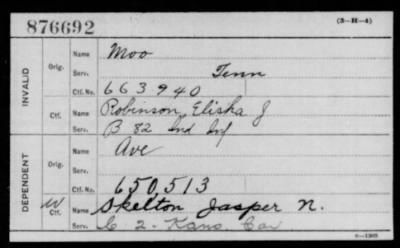 876692
(3-H-4)
INVALID
Orig.
Name Moo
Serv. Tenn
Ctf. No. 663940
Ctf.
Name Robinson, Elisha J
Serv. B 82 Ind Inf
DEPENDENT
Orig.
Name Ave
Serv.
Ctf. No. 650,513
W
Ctf.
Name Skelton Jasper N.
Serv. C-2-Kans. Cav